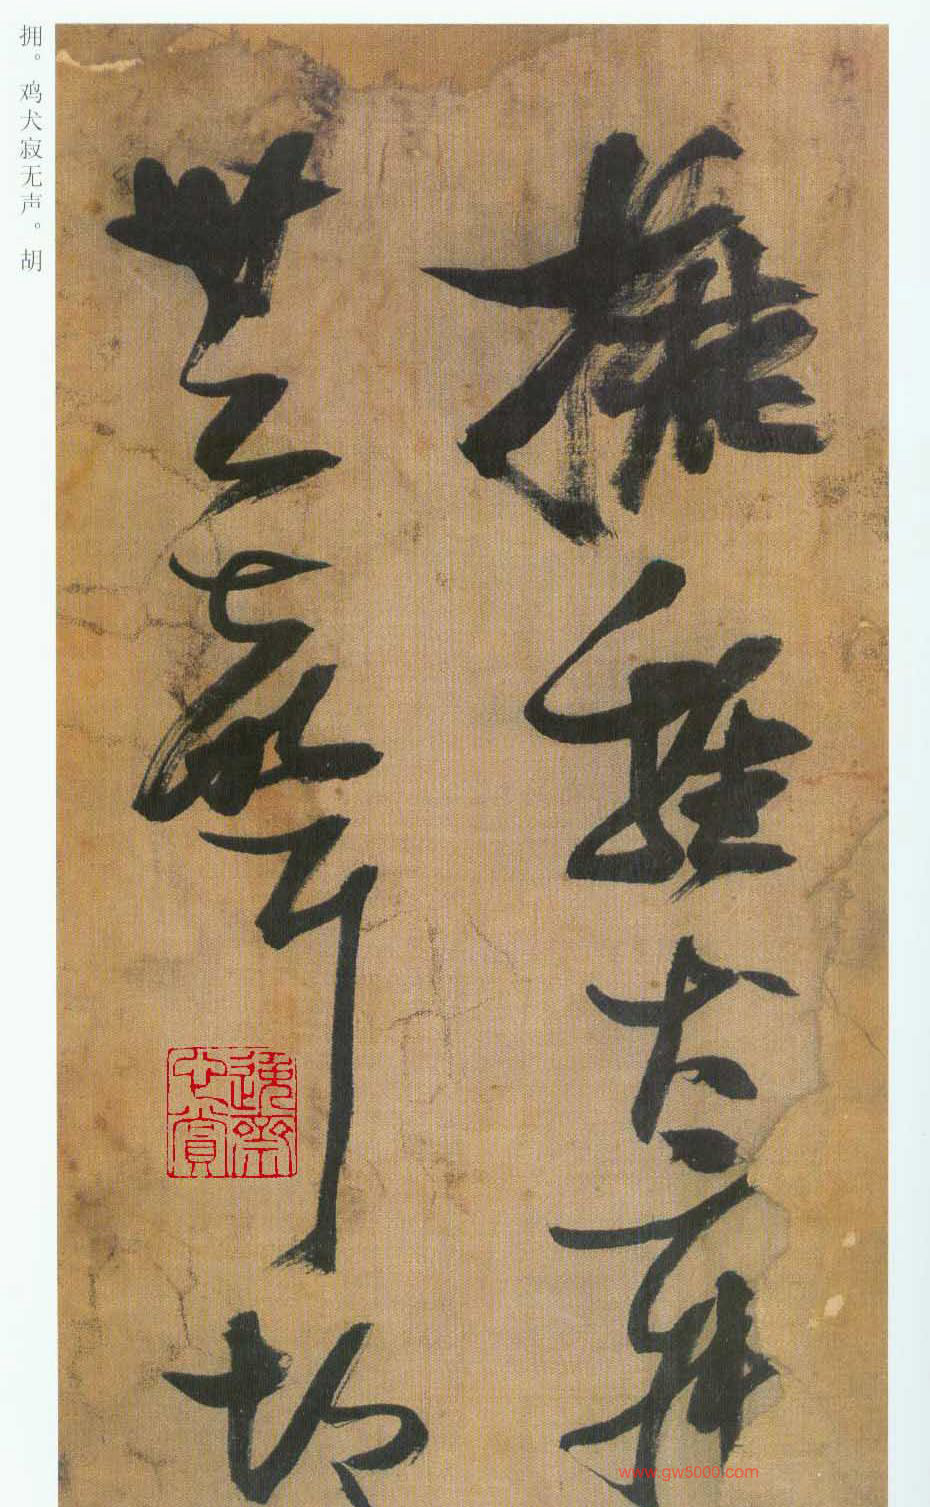 擁雞犬寂
無聲胡
拥。鸡犬寂无声。胡
www.gw5000.com